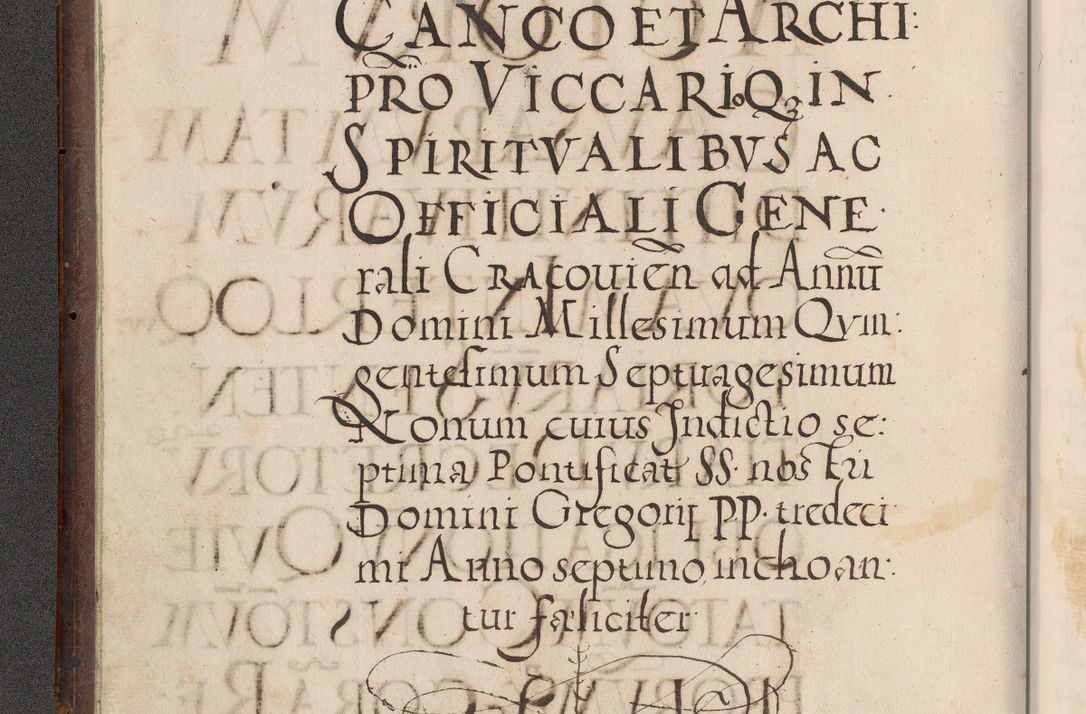 CANCO ET ARCHI:
PR̃O VICCARIOQ₃ IN
SPIRITVALIBVS AC
OFFICIALI GENE·
rali CRACOUIEÑ ad Annũ
Domini Millesimum QVin:
gentesimum Septuagesimum
Nonum cuius Indictio se:
ptima Pontificat SS· nos
Domini Gregorij PP· tredeci
mi Anno septimo inchoan:
tur fæliciter